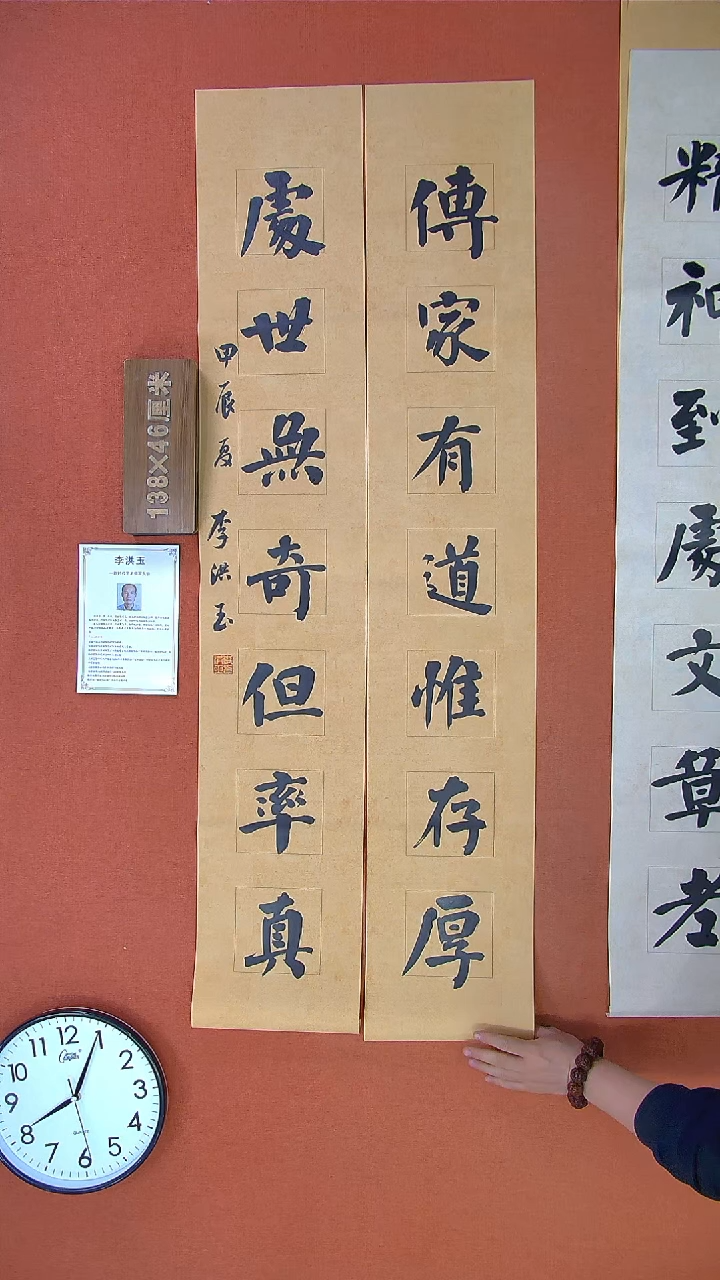 傳家有道惟存厚
處世無奇但率真
甲辰夏 李洪玉
138×46厘米
李洪玉
精
神
到
處
文
章
老
12
1
2
3
4
5
6
7
8
9
10
11